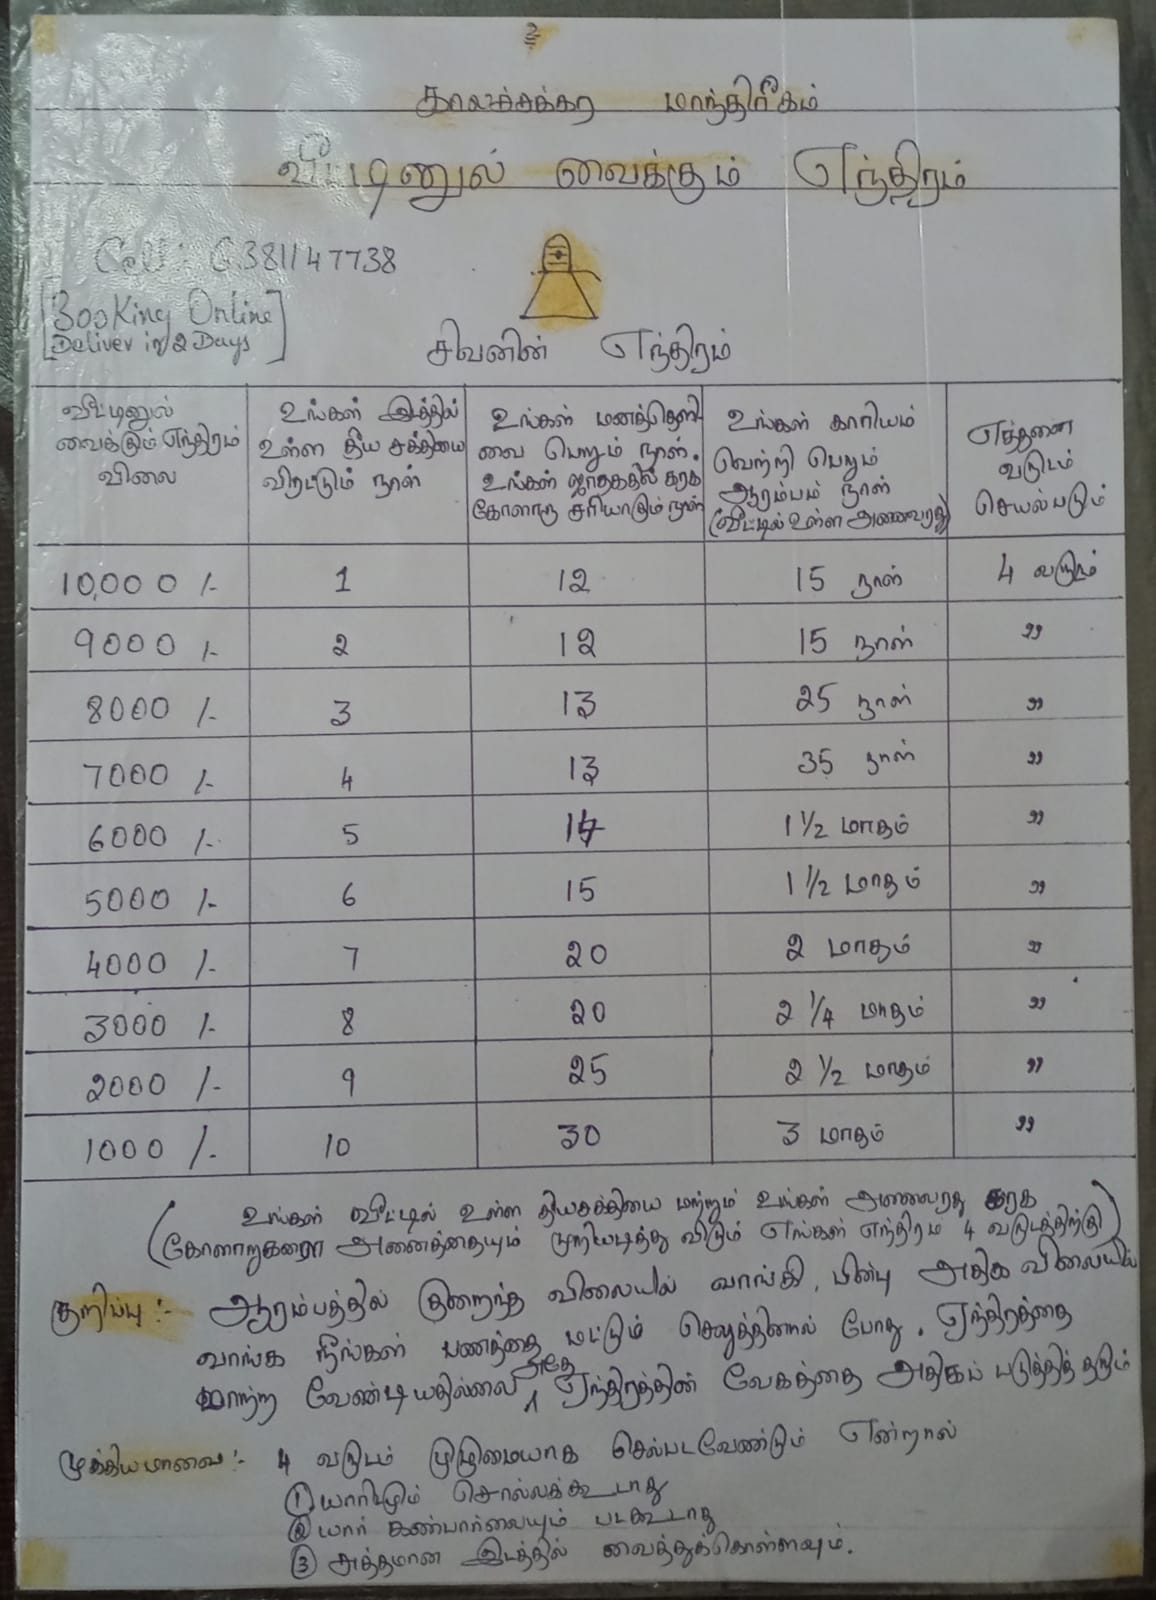 உ
காலச்சக்கர மாந்திரீகம்
வீட்டினுல் வைக்கும் எந்திரம்
Call : 6381147738
[Booking Online
Deliver in 2 Days]
சிவனின் எந்திரம்
வீட்டினுல் வைக்கும் எந்திரம் விலை | உங்கள் இடத்தில் உள்ள தீய சக்தியை விரட்டும் நாள் | உங்கள் மனத்தெளிவை பெறும் நாள். உங்கள் ஜாதகதில் கரக கோளாறு சரியாடும் நாள் | உங்கள் காரியம் வெற்றி பெறும் ஆரம்பம் நாள் (வீட்டில் உள்ள அணைவரது) | எத்தனை வடுடம் செயல்படும்
10,000 /- | 1 | 12 | 15 நாள் | 4 வருடம்
9000 /- | 2 | 12 | 15 நாள் | "
8000 /- | 3 | 13 | 25 நாள் | "
7000 /- | 4 | 13 | 35 நாள் | "
6000 /- | 5 | 14 | 1 1/2 மாதம் | "
5000 /- | 6 | 15 | 1 1/2 மாதம் | "
4000 /- | 7 | 20 | 2 மாதம் | "
3000 /- | 8 | 20 | 2 1/4 மாதம் | "
2000 /- | 9 | 25 | 2 1/2 மாதம் | "
1000 /- | 10 | 30 | 3 மாதம் | "
(உங்கள் வீட்டில் உள்ள தியசக்தியை மற்றும் உங்கள் அணைவரது கரக
கோளாறுகளை அனைத்தையும் முறியடித்து விடும் எங்கள் எந்திரம் 4 வடுடத்திற்கு)
குறிப்பு :- ஆரம்பத்தில் குறைந்த விலையில் வாங்கி, பின்பு அதிக விலையில்
வாங்க நீங்கள் பணத்தை மட்டும் செலுத்தினால் போது. எந்திரத்தை
மாற்ற வேண்டியதில்லை அதே எந்திரத்தின் வேகத்தை அதிகப் படுத்தித் தரும்
முக்கியமாவை :- 4 வடுடம் முழுமையாக செல்படவேண்டும் என்றால்
① யாரிடமும் சொல்லக்கூடாது
② யார் கண்பார்வையும் படகூடாது
③ சுத்தமான இடத்தில் வைத்துக்கொள்ளவும்.